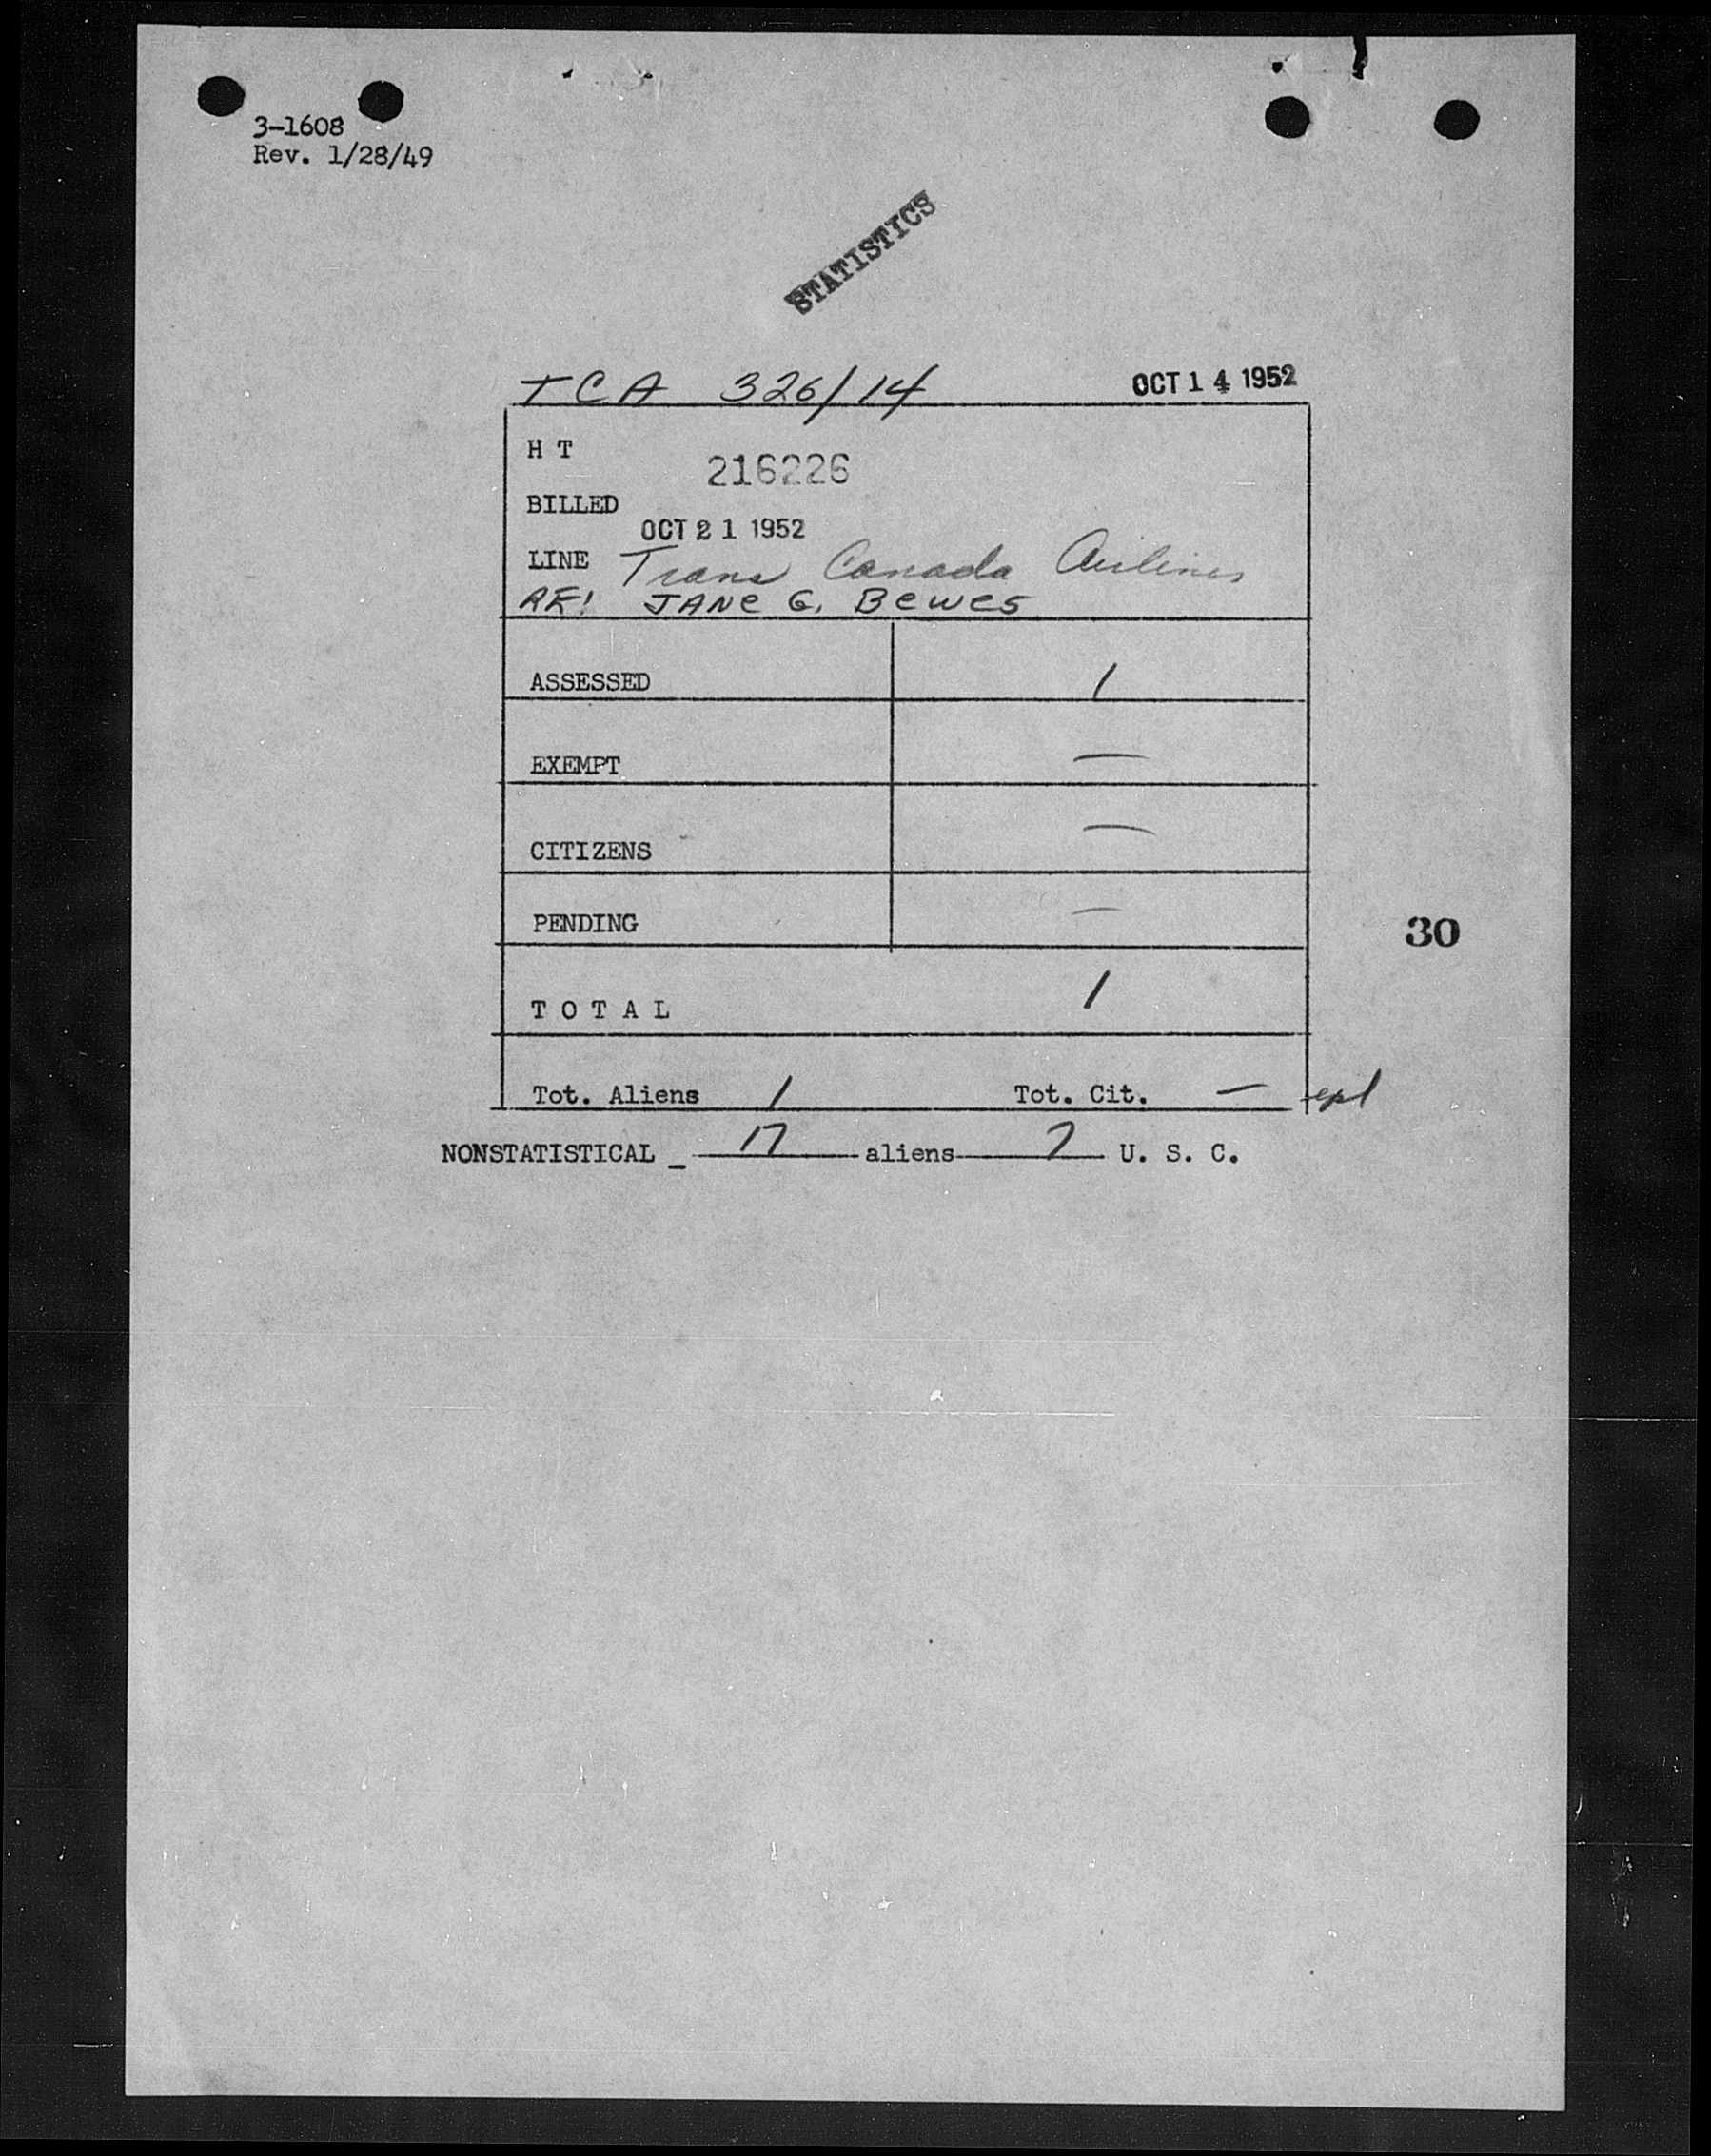 3-1608
Rev. 1/28/49
STATISTICS
TCA 326/14 OCT 14 1952
H T
216226
BILLED
OCT 21 1952
LINE Trans Canada Airlines
RE: JANE G. BEWES
ASSESSED 1
EXEMPT —
CITIZENS —
PENDING —
30
T O T A L 1
Tot. Aliens 1 Tot. Cit. —
NONSTATISTICAL - 17 aliens 7 U. S. C.